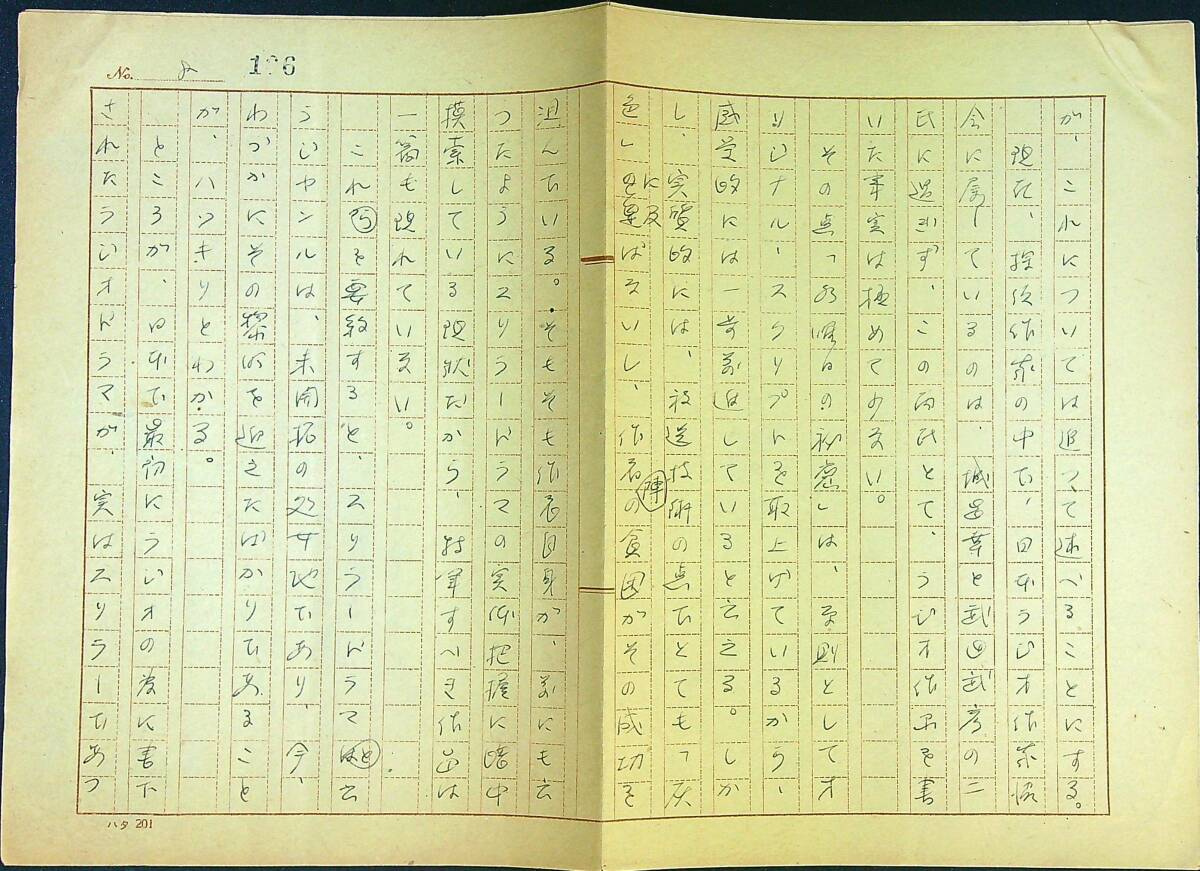 No. 8 136
が、これについては追って述べることにする。
現在、探偵作家の中で、日本ラジオ作家協
会に属しているのは、城昌幸と武田武彦の二
氏に過ぎず、この両氏とて、ラジオ作品を書
いた事実は極めて少ない。
その点「日曜日の秘密」は、原則としてオ
リジナル・スクリプトを取上げているから、
感覚的には一歩前進していると云える。しか
し、実質的には、放送技術の点でとても「灰
色」の域に及ばないし、作者陣の貧困がその成功を
阻んでいる。そもそも作者自身が、前にも云
ったようにスリラードラマの実体把握に暗中
模索している現状だから、特筆すべき作品は
一篇も現れていない。
これを要約すると、スリラードラマと云
うジャンルは、未開拓の処女地であり、今、
わづかにその黎明を迎えたばかりであること
が、ハッキリとわかる。
ところが、日本で最初にラジオの為に書下
されたラジオドラマが、実はスリラーであっ
ハタ 201